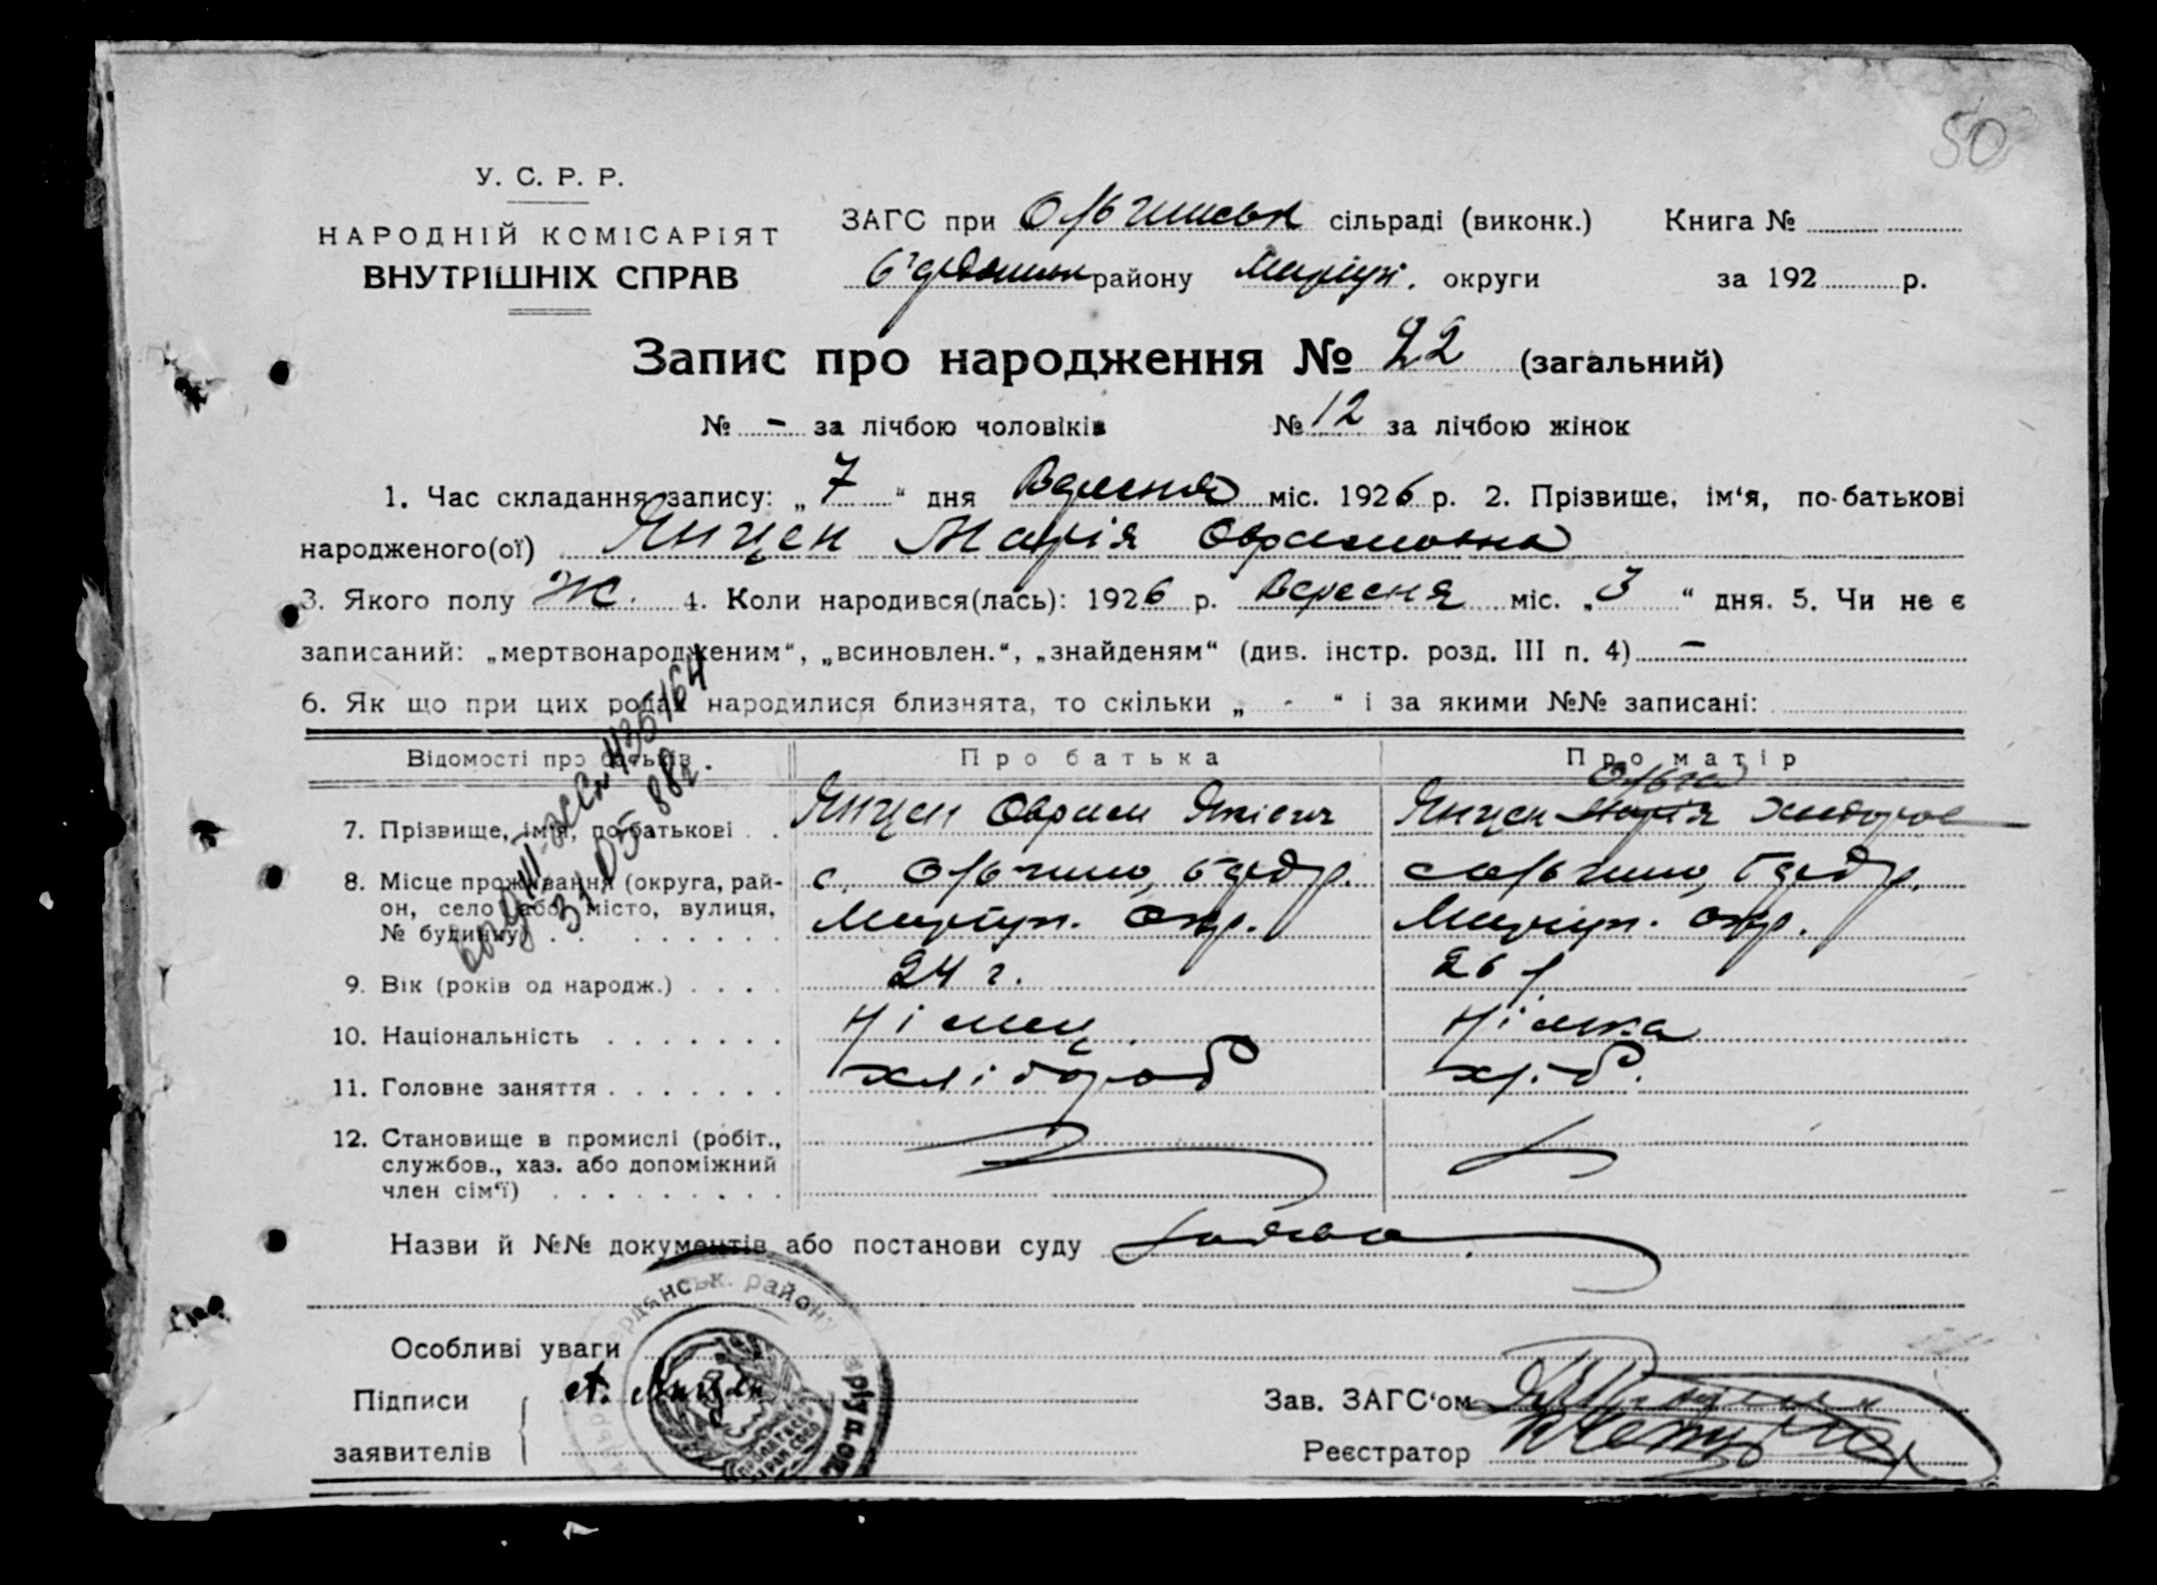 50
У. С. Р. Р.
НАРОДНІЙ КОМІСАРІЯТ
ВНУТРІШНІХ СПРАВ
ЗАГС при Ольгинськ сільраді (виконк.) Книга №
району Маріуп. округи за 192 р.
Запис про народження № 22 (загальний)
№ - за лічбою чоловіків № 12 за лічбою жінок
1. Час складання запису: „ 7 “ дня Вересня міс. 1926 р. 2. Прізвище, ім‘я, по-батькові
народженого(ої) Янцен Марія Абрамовна
3. Якого полу Ж. 4. Коли народився(лась): 1926 р. Вересня міс. „ 3 “ дня. 5. Чи не є
записаний: „мертвонародженим“, „всиновлен.“, „знайденям“ (див. інстр. розд. III п. 4) -
6. Як що при цих родах народилися близнята, то скільки „ - “ і за якими №№ записані:
Відомості про батьків. Про батька Про матір
Ольга
7. Прізвище, ім‘я, по-батькові . . Янцен Абрам Янцен Марія
8. Місце проживання (округа, рай- с. Ольгино, с. Ольгино,
он, село або місто, вулиця, Маріуп. окр. Маріуп. окр.
№ будинку)
9. Вік (років од народж.) . . . . 24 г. 26 р.
10. Національність . . . . . . . німец німка
11. Головне заняття . . . . . . . хлібороб хл-б.
12. Становище в промислі (робіт.,
службов., хаз. або допоміжний
член сім‘ї) . . . . . . . . .
Назви й №№ документів або постанови суду
Особливі уваги
Підписи А. Янцен Зав. ЗАГС‘ом
заявителів Реєстратор
31.05.88г.